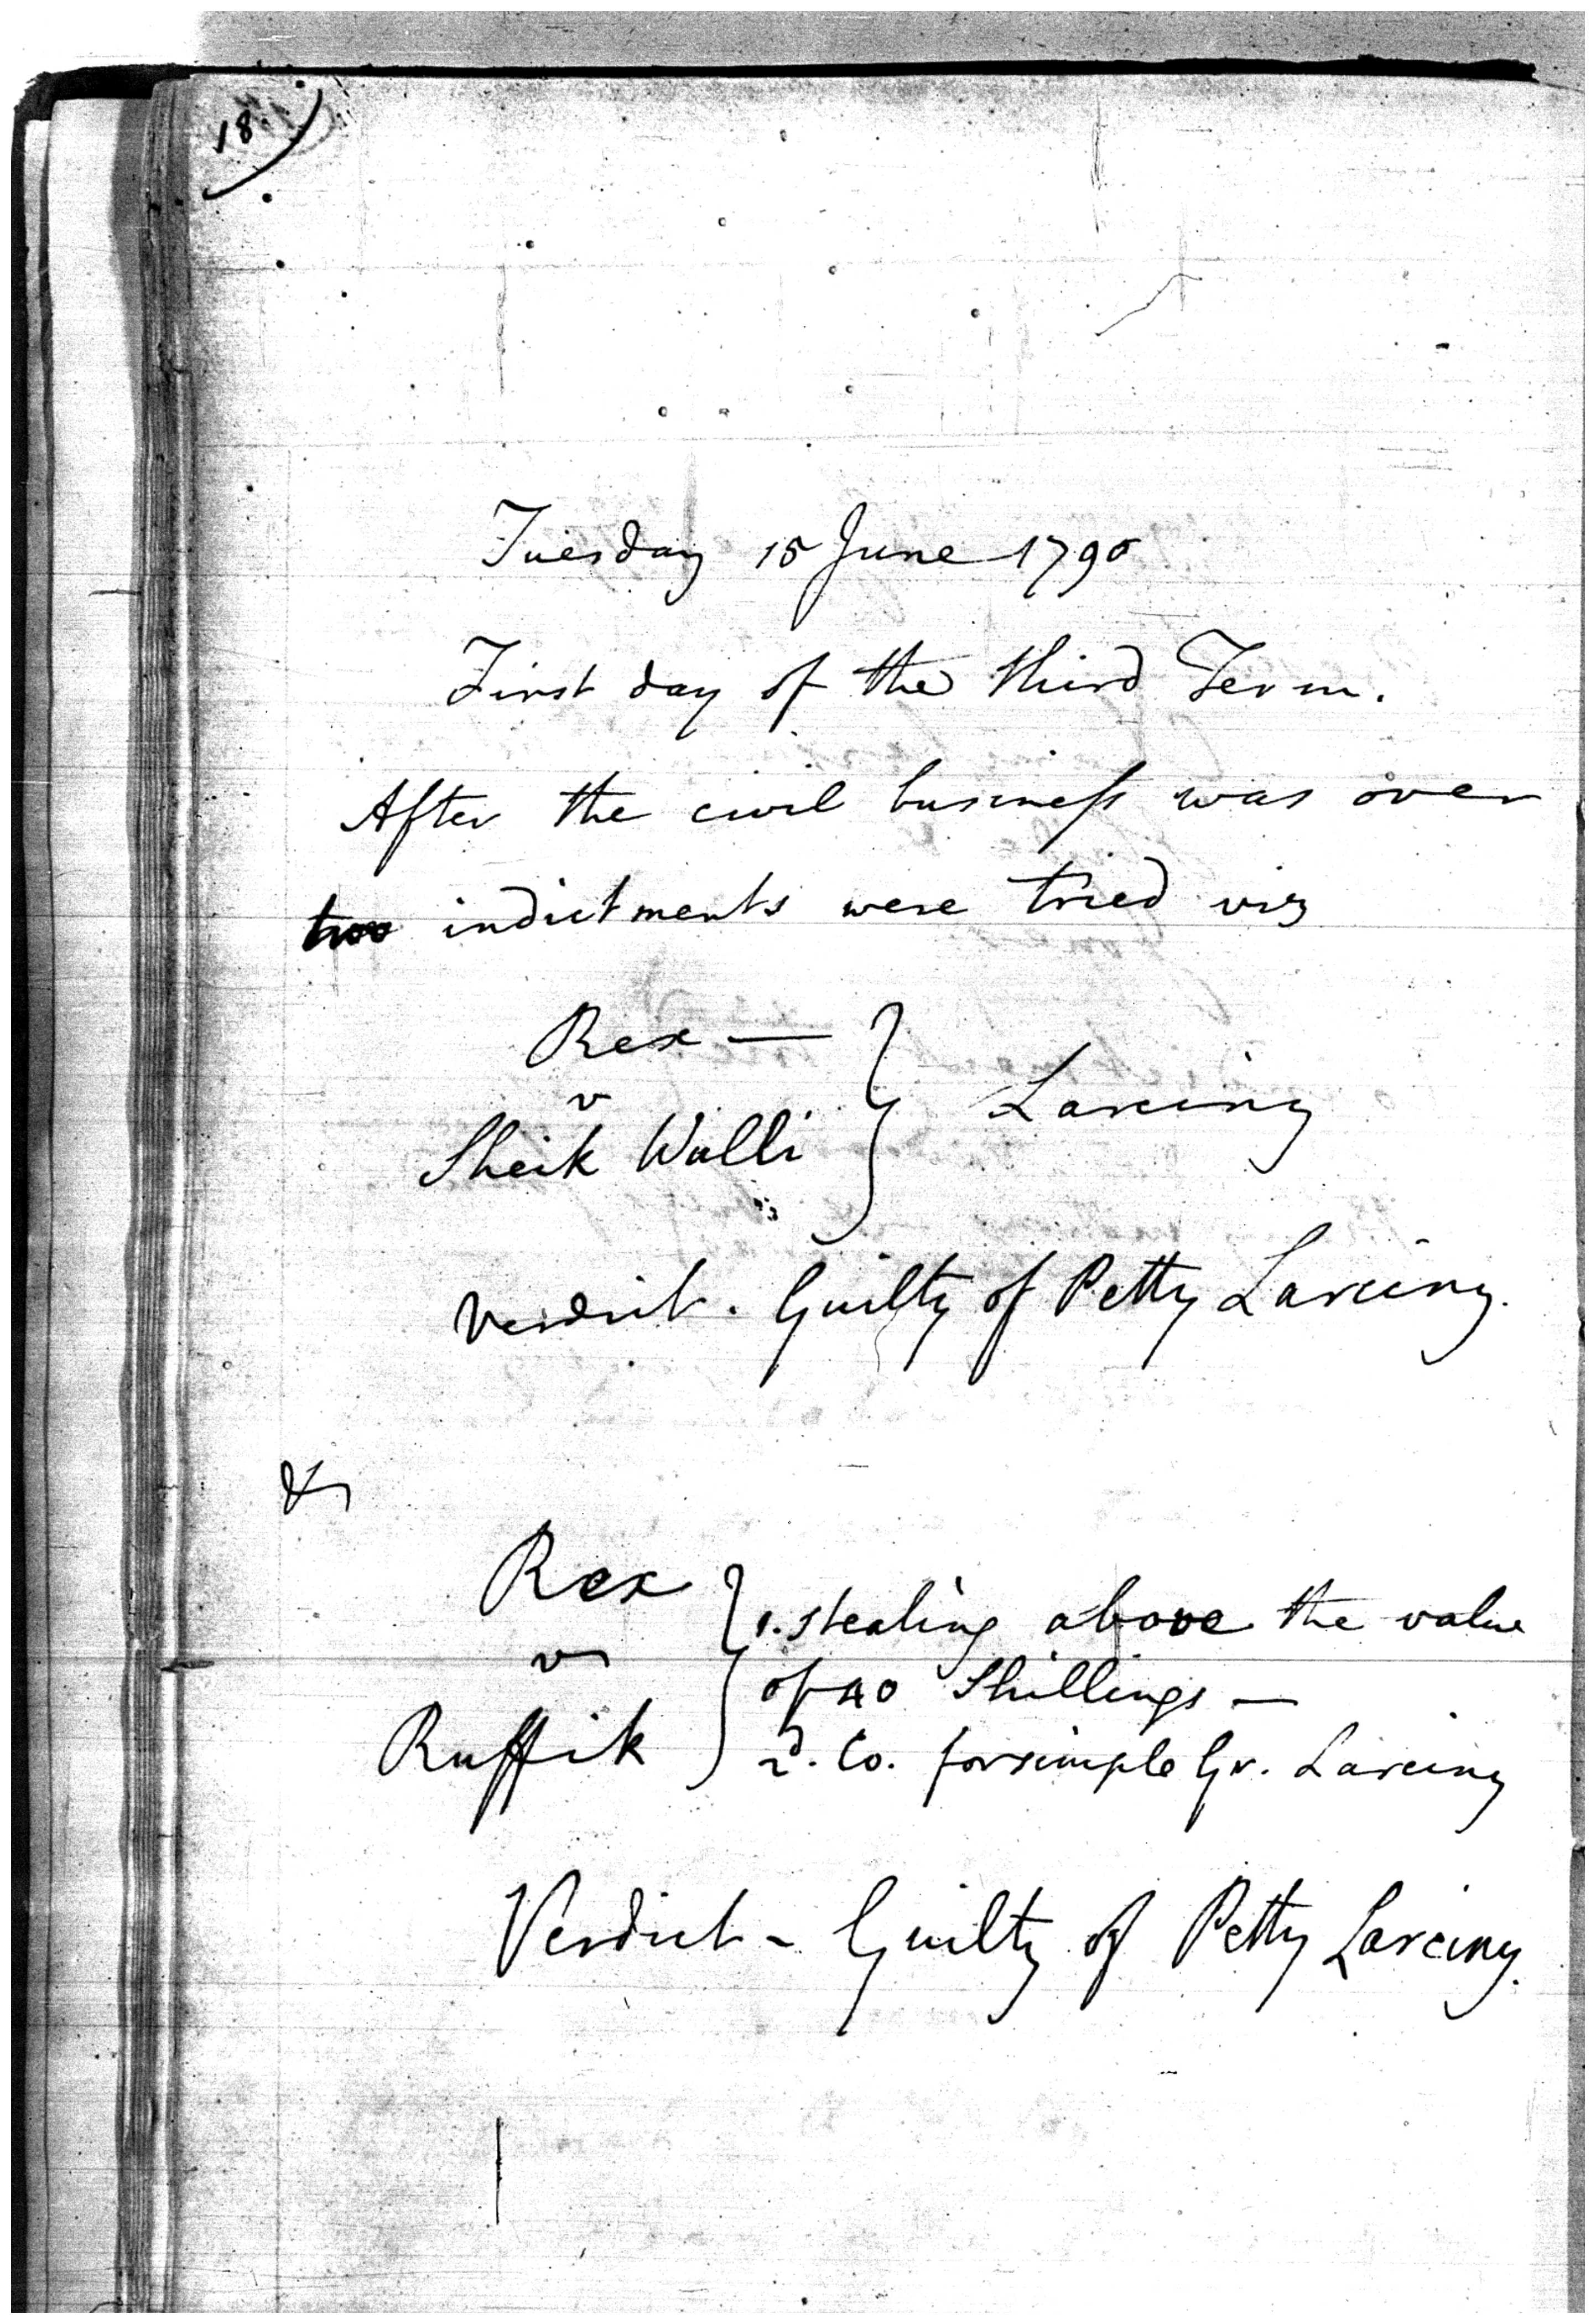 18.
Tuesday 15 June 1790
First day of the third Term.
After the civil business was over
two indictments were tried viz
Rex —
v
Sheik Wulli } Larciny
Verdict. Guilty of Petty Larciny.
&
Rex
v
Ruffik } 1. stealing above the value
of 40 Shillings —
2. Co. for simple Gr. Larciny
Verdict - Guilty of Petty Larciny.